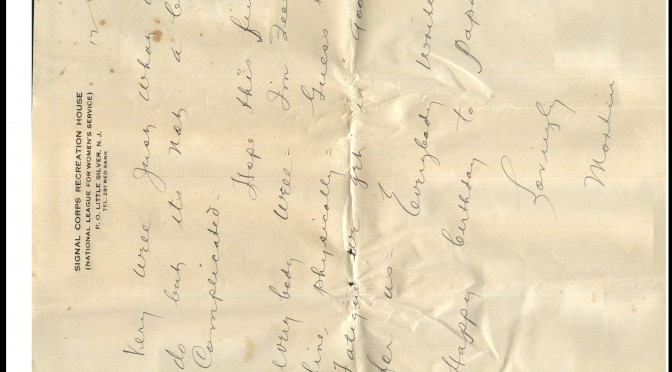 SIGNAL CORPS RECREATION HOUSE
(NATIONAL LEAGUE FOR WOMEN'S SERVICE)
P. O. LITTLE SILVER, N. J.
TEL. 291 RED BANK
17
Very well just what
do but its not a
Complicated-
Hope this
every body well - I'm
fine, physically = Guess
Fatigue we get is
for us =
Everybody
Happy birthday to Papa
Lovingly